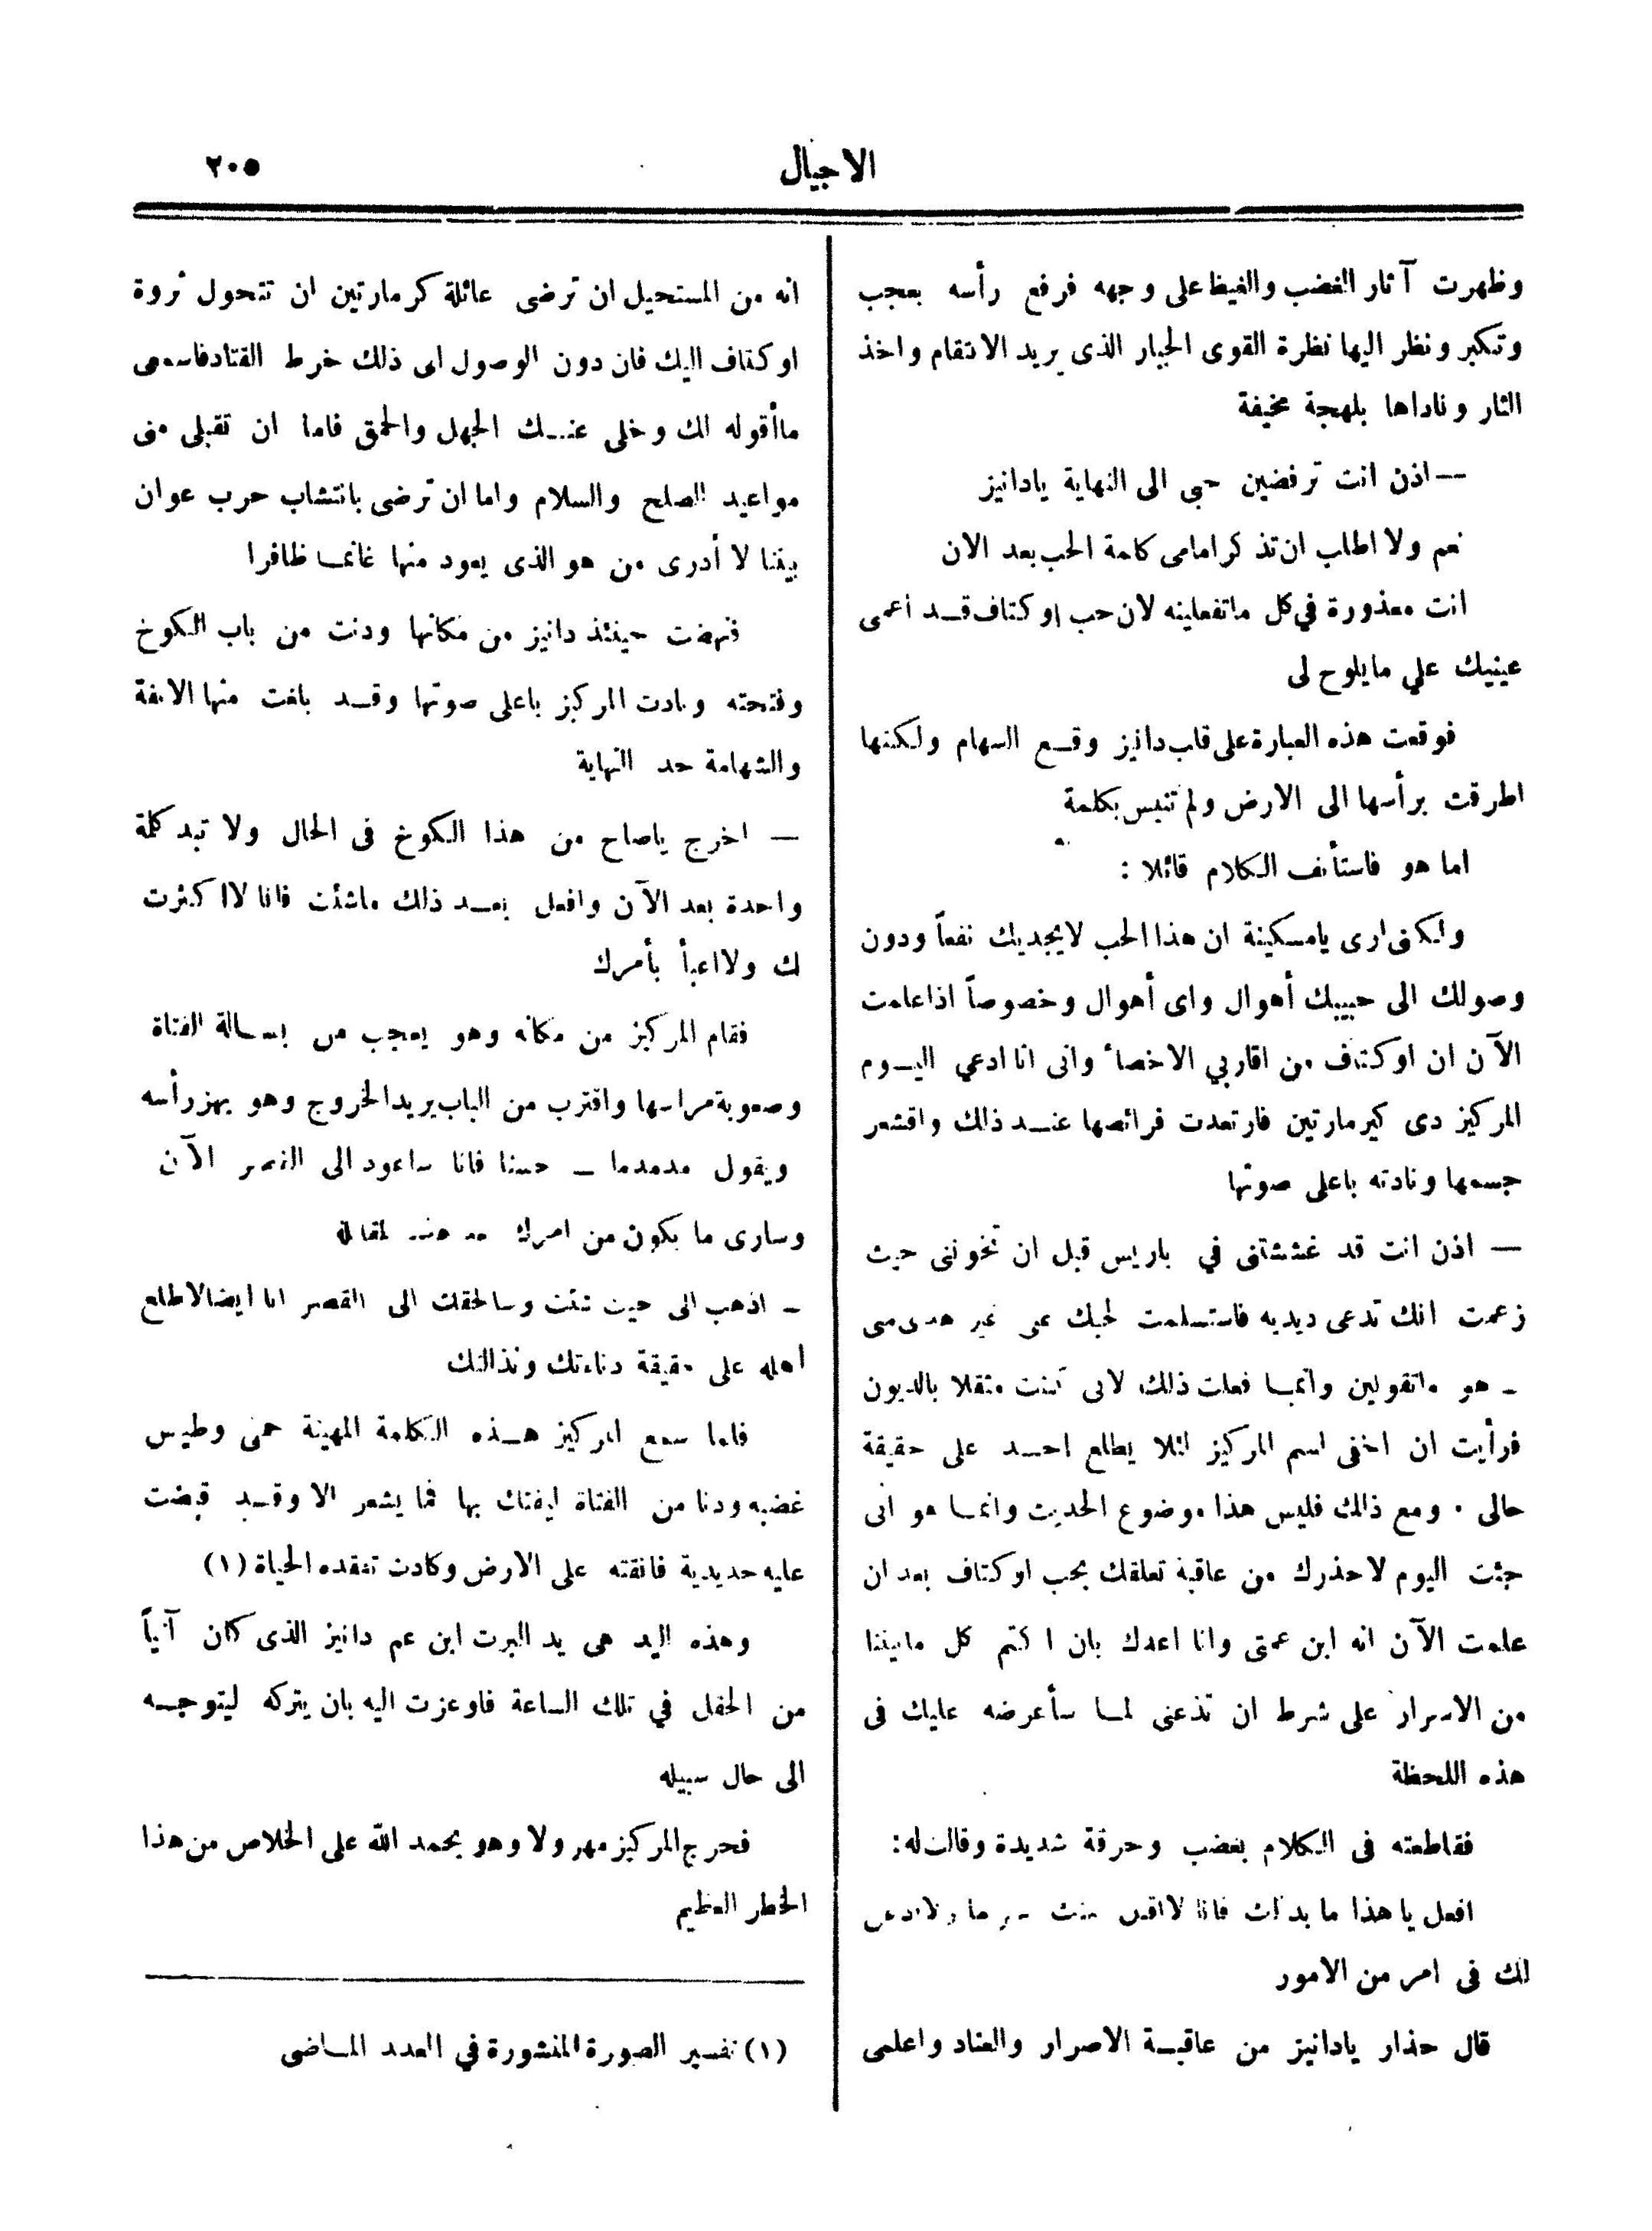 الاجيال
٢٠٥
وظهرت آثار الغضب والغيظ على وجهه فرفع رأسه بعجب
وتكبر ونظر اليها نظرة القوى الجبار الذى يريد الانتقام واخذ
الثار وناداها بلهجة مخيفة
— اذن انت ترفضين حبى الى النهاية يادانيز
نعم ولا اطلب ان تذكر امامى كلمة الحب بعد الان
انت معذورة في كل ماتفعلينه لان حب اوكتاف قد اعمى
عينيك علي مايلوح لى
فوقعت هذه العبارة على قلب دانيز وقع السهام ولكنها
اطرقت برأسها الى الارض ولم تنبس بكلمة
اما هو فاستأنف الكلام قائلا :
ولكنى ارى يامسكينة ان هذا الحب لايجديك نفعاً ودون
وصولك الى حبيبك أهوال واى أهوال وخصوصاً اذا علمت
الآن ان اوكتاف من اقاربي الاخصاء وانى انا ادعي اليوم
المركيز دى كيرمارتين فارتعدت فرائصها عند ذلك واقشعر
جسمها ونادته باعلى صوتها
— اذن انت قد غششتنى في باريس قبل ان تخوننى حيث
زعمت انك تدعى ديديه فاستسلمت لحبك على غير هدى منى
- هو ماتقولين وانما فعلت ذلك لانى كنت مثقلا بالديون
فرأيت ان اخفى اسم المركيز لئلا يطلع احد على حقيقة
حالى . ومع ذلك فليس هذا موضوع الحديث وانما هو انى
جئت اليوم لاحذرك من عاقبة تعلقك بحب اوكتاف بعد ان
علمت الآن انه ابن عمتى وانا اعدك بان اكتم كل مابيننا
من الاسرار على شرط ان تذعنى لما سأعرضه عليك فى
هذه اللحظة
فقاطعته فى الكلام بغضب وحرقة شديدة وقالت له:
افعل يا هذا ما بدالك فانا لااقبل منك
لك فى امر من الامور
قال حذار يادانيز من عاقبة الاصرار والعناد واعلمى
انه من المستحيل ان ترضى عائلة كرمارتين ان تتحول ثروة
اوكتاف اليك فان دون الوصول الى ذلك خرط القتاد فاسمعى
ماأقوله لك وخلى عنك الجهل والحمق فاما ان تقبلى منى
مواعيد الصلح والسلام واما ان ترضى بانتشاب حرب عوان
بيننا لا أدرى من هو الذى يعود منها غانما ظافرا
فنهضت حينئذ دانيز من مكانها ودنت من باب الكوخ
وفتحته ونادت المركيز باعلى صوتها وقد بلغت منها الانفة
والشهامة حد النهاية
— اخرج ياصاح من هذا الكوخ فى الحال ولا تبد كلمة
واحدة بعد الآن وافعل بعد ذلك ماشئت فانا لا اكترث
لك ولااعبأ بأمرك
فقام المركيز من مكانه وهو يعجب من بسالة الفتاة
وصعوبة مراسها واقترب من الباب يريد الخروج وهو يهز رأسه
ويقول مدمدما — حسنا فانا ساعود الى القصر الآن
وسارى ما يكون من امرك
- اذهب الى حيث شئت وسالحقك الى القصر انا ايضا لاطلع
اهله على حقيقة دناءتك ونذالتك
فلما سمع المركيز هذه الكلمة المهينة حمى وطيس
غضبه ودنا من الفتاة ليفتك بها فما يشعر الا وقد قبضت
عليه حديدية فالقته على الارض وكادت تفقده الحياة (١)
وهذه اليد هى يد البرت ابن عم دانيز الذى كان آتياً
من الحقل في تلك الساعة فاوعزت اليه بان يتركه ليتوجه
الى حال سبيله
فخرج المركيز مهرولا وهو يحمد الله على الخلاص من هذا
الخطر العظيم
(١) تفسير الصورة المنشورة في العدد الماضى